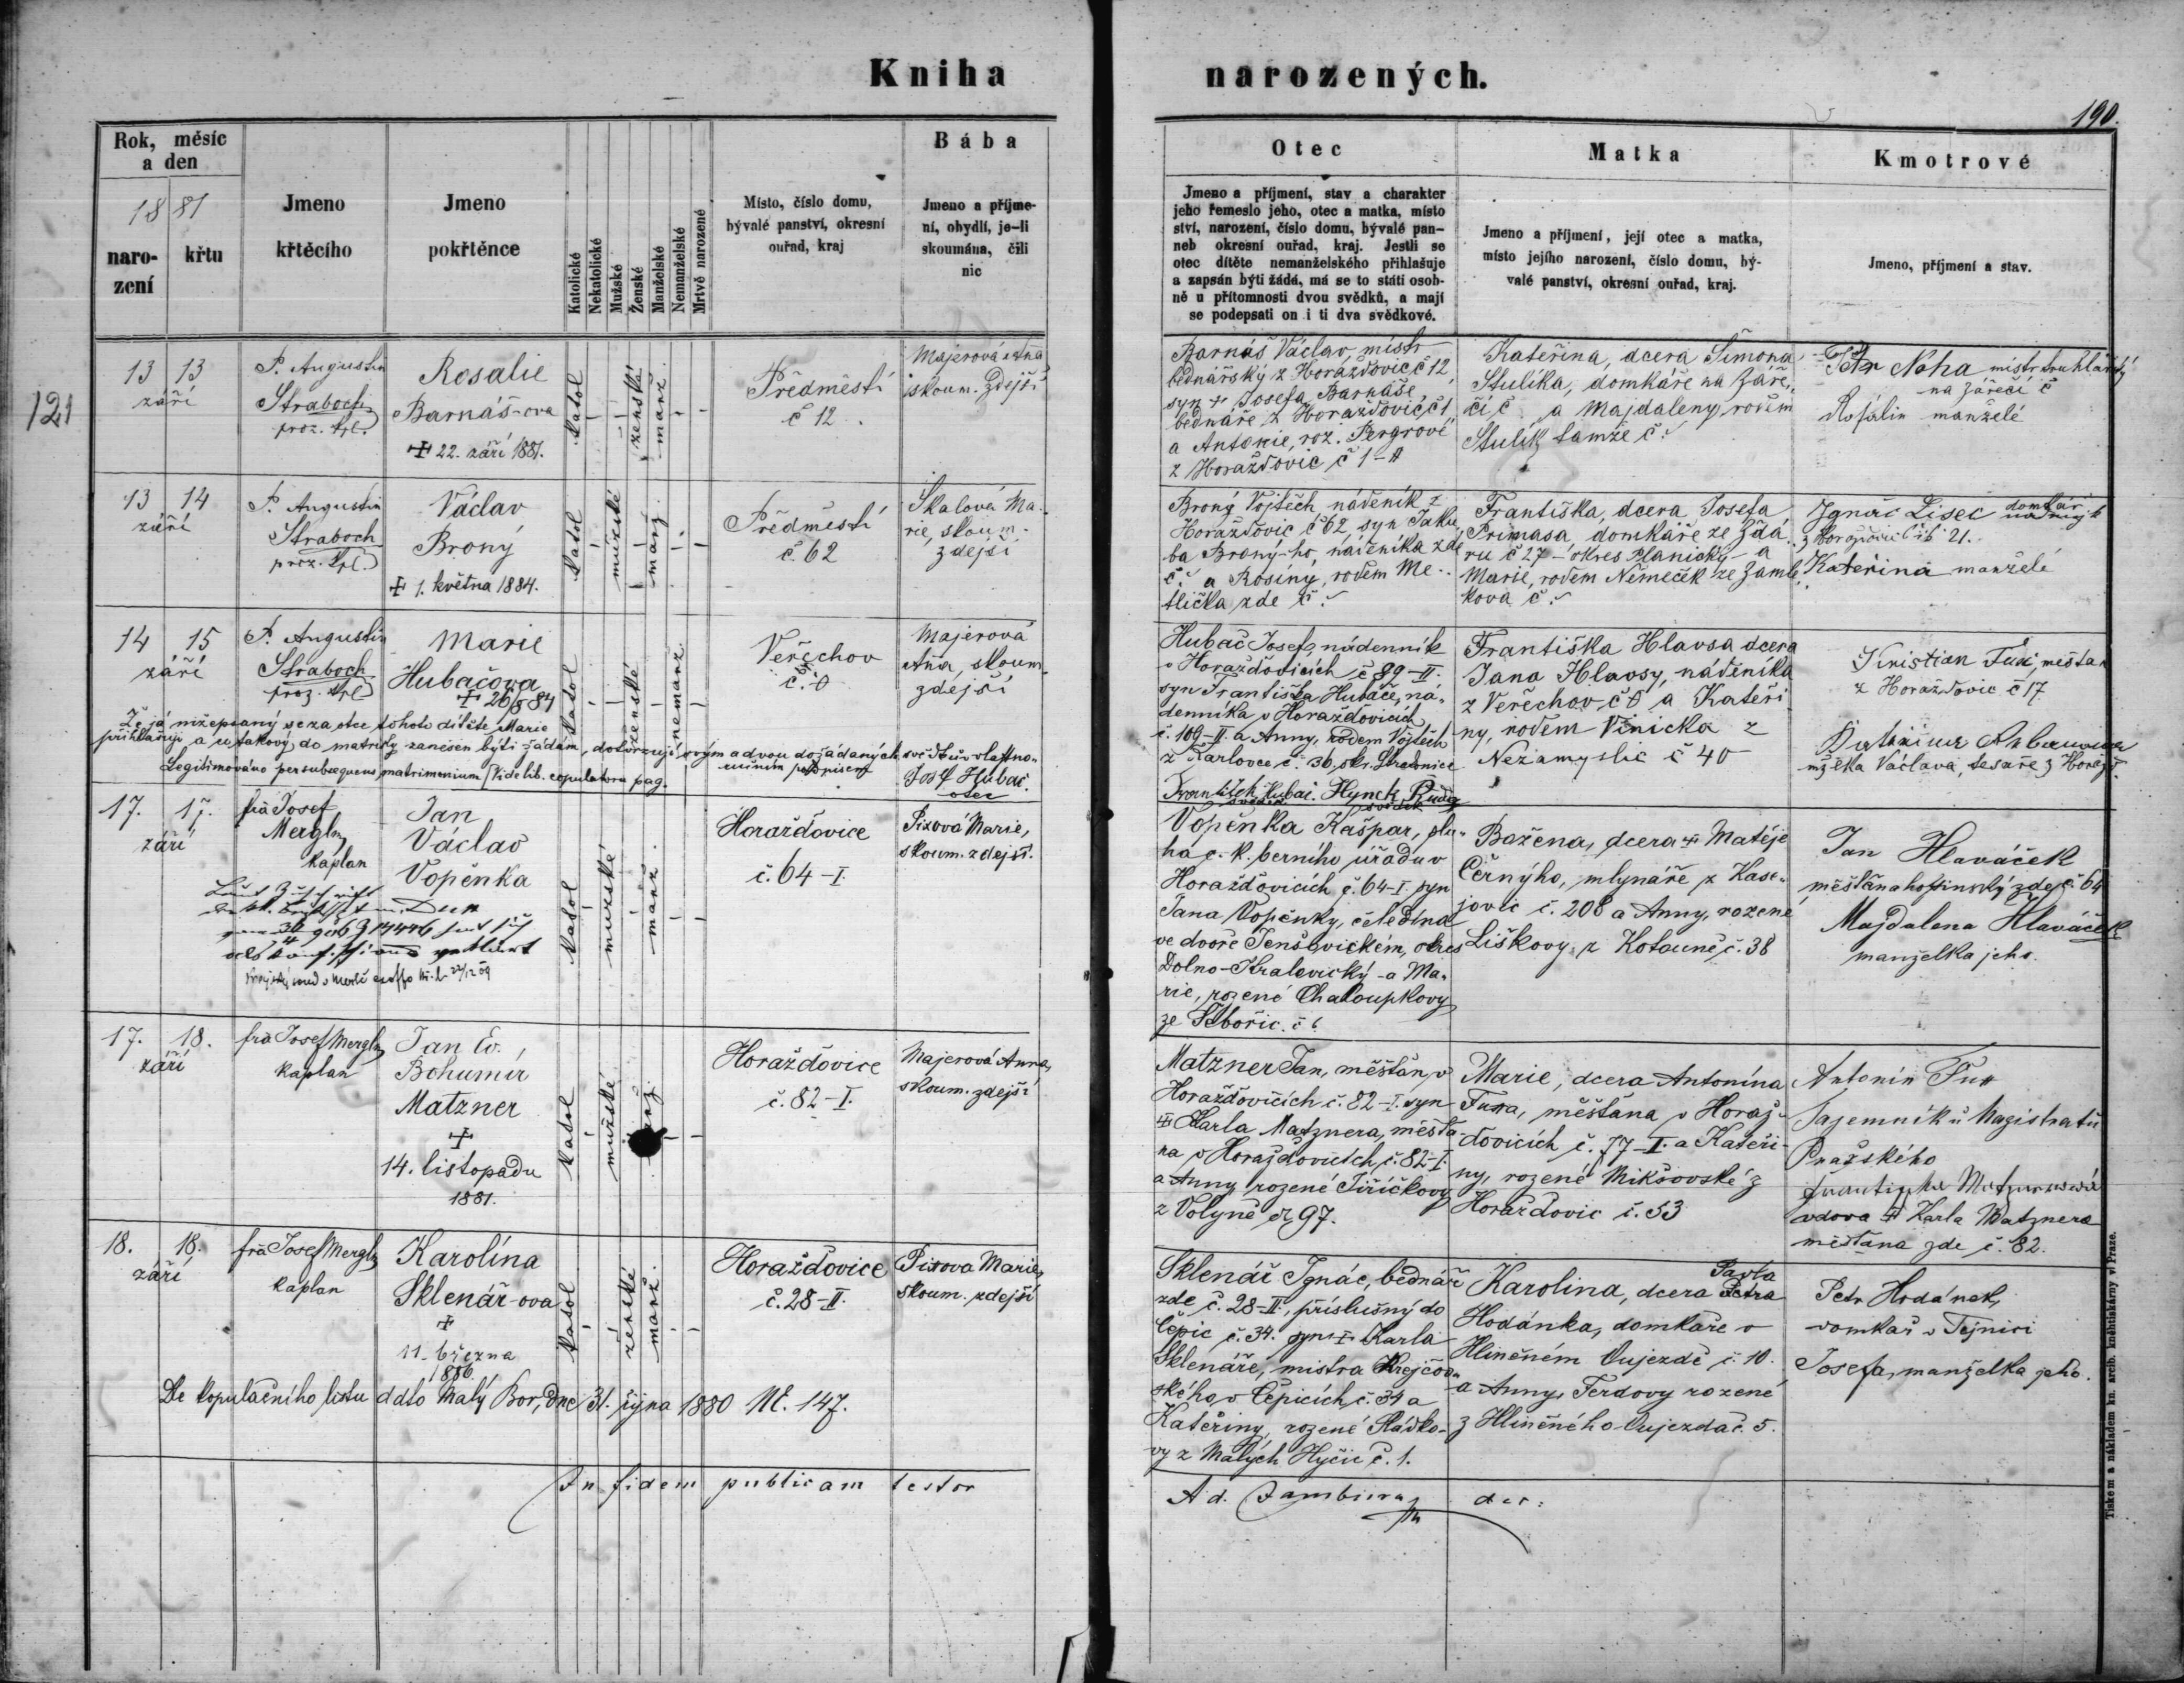 Kniha
Rok, měsíc
a den
1881
naro-
zení
křtu
Jmeno
křtěcího
Jmeno
pokřtěnce
Katolické
Nekatolické
Mužské
Ženské
Manželské
Nemanželské
Mrtvě narozené
Místo, číslo domu,
bývalé panství, okresní
ouřad, kraj
Bába
Jmeno a příjme-
ní, obydlí, je-li
skoumána, čili
nic
121
13 13
září
P. Augustin
Straboch
Rosalie
Barnáš-ova
✝ 22. září 1881.
katol
ženské
manž.
Předměstí
č 12.
Majerová Aňa
skoum. zdejší
13 14
září
P. Augustin
Straboch
Václav
Brony
✝ 1. května 1884.
katol
mužské
manž.
Předměstí
č. 62
Skalová Ma-
rie, skoum.
zdejší
14 15
září
P. Augustin
Straboch
Marie
Hubačova
katol
ženské
nemanž.
Veřechov
č. 8
Majerová
Aňa, skoum.
zdejší
Že já nížepsaný se za otce tohoto dítěte Marie
přihlašuji a co takový do matriky zanésen býti žádám, dotvrzuji svým a dvou dožádaných svědků vlastno-
ručním podpisem
Legitimováno per subsequens matrimonium (Vide lib. copulatoru pag.
Josef Hubač.
otec
17. 17.
září
Josef
Mergl
kaplan
Jan
Václav
Vopěnka
katol
mužské
manž.
Horažďovice
č. 64-I.
Pixová Marie,
skoum. zdejší.
17. 18.
září
Josef Mergl
kaplan
Jan Ev.,
Bohumír
Matzner
✝
14. listopadu
1881.
katol
mužské
Horažďovice
č. 82-I.
Majerová Anna,
skoum. zdejší
18. 18.
září
Josef Mergl
kaplan
Karolína
Sklenář-ova
✝
11. března
1886.
katol
ženské
manž.
Horažďovice
č. 28-II.
Pixova Marie,
skoum. zdejší
Dle kopulačního listu ddto Malý Bor, dne 31. října 1880 N. 147.
In fidem publicam testor
narozených.
190.
Otec
Jmeno a příjmení, stav a charakter
jeho řemeslo jeho, otec a matka, místo
ství, narození, číslo domu, bývalé pan-
neb okresní ouřad, kraj. Jestli se
otec dítěte nemanželského přihlašuje
a zapsán býti žádá, má se to státi osob-
ně u přítomnosti dvou svědků, a mají
se podepsati on i ti dva svědkové.
Matka
Jmeno a příjmení, její otec a matka,
místo jejího narození, číslo domu, bý-
valé panství, okresní ouřad, kraj.
Kmotrové
Jmeno, příjmení a stav.
Barnáš Václav, mistr
bednářský z Horažďovic č 12,
syn ✝ Josefa Barnáše,
bednáře z Horažďovic, č 1
a Antonie, roz. Pergrové
z Horažďovic č 1-II
Kateřina, dcera Šimona
Stulíka, domkáře na Záře-
čí č. a Majdaleny, rodem
Stulík tamže č.
Petr Noha mistr truhlářský
na Zářečí č
Rosalie manželé
Brony Vojtěch, nádeník z
Horažďovic č 62, syn Jaku-
ba Brony-ho, nádeníka zde
č. a Rosiny, rodem Me-
tlička zde č.
Františka, dcera Josefa
Primasa, domkáře ze Ždá-
ru č 27 - okres Planický - a
Marie, rodem Němeček ze Zamlé-
kova č.
Ignác Lisec domkář
z Horažďovic čís 21.
Kateřina manželé
Hubač Josef, nádenník
v Horažďovicích č 89-II.
syn Františka Hubače, ná-
denníka v Horažďovicích
č. 109-II. a Anny, rodem Vojtěch
z Karlovce č. 36, okr. Strakonice
František Hubač. Hynek Rudý
svědek svědek
Františka Hlavsa dcera
Jana Hlavsy, nádeníka
z Veřechov, č 8 a Kateři
ny, rodem Vinická z
Nezamyslic č 40
Kristian Fux, měšťan
z Horažďovic č 17
mželka Václava, tesaře z Horažď.
Vopěnka Kašpar, slu-
ha c. k. berního úřadu v
Horažďovicích č. 64-I. syn
Jana Vopěnky, čeledína
ve dvoře Jenšovickém, okres
Dolno-Kralovický - a Ma-
rie, rozené Chaloupkovy
ze Sebořic. č 6.
Božena, dcera ✝ Matěje
Černýho, mlynáře z Kase-
jovic č. 208 a Anny, rozené
Liškovy z Kotouně č. 38
Jan Hlaváček
měšťan a hostinský zdej. č 64
Majdalena Hlaváček
manželka jeho.
Matzner Jan, měšťan v
Horažďovicích č. 82-I. syn
✝ Karla Matznera, měšťa-
na v Horažďovicích, č. 82-I.
a Anny rozené Jiříčkovy
z Volyně č 97.
Marie, dcera Antonína
Fuxa, měšťana v Horaž-
ďovicích č. 77-I. a Kateři-
ny, rozené Mikšovské z
Horažďovic č. 53
Antonín Fux
Tajemník ú Magistratu
Pražského
Františka Matznerová
vdova ✝ Karla Matznera
měšťana zde č. 82.
Sklenář Ignác, bednář
zde č. 28-II, příslušný do
Čepic č. 34. syn ✝ Karla
Sklenáře, mistra krejčov-
ského v Čepicích č. 34 a
Kateřiny, rozené Sládko-
vy z Malých Hyčic č. 1.
Karolina, dcera Petra
Pavla
Hodánka, domkáře v
Hliněném Oujezdě č. 10.
a Anny, Terdovy rozené
z Hliněného Oujezda č. 5.
Petr Hodánek,
domkař v Tejnici
Josefa, manželka jeho.
Tiskem a nákladem kn. arcib. kněhtiskárny v Praze.